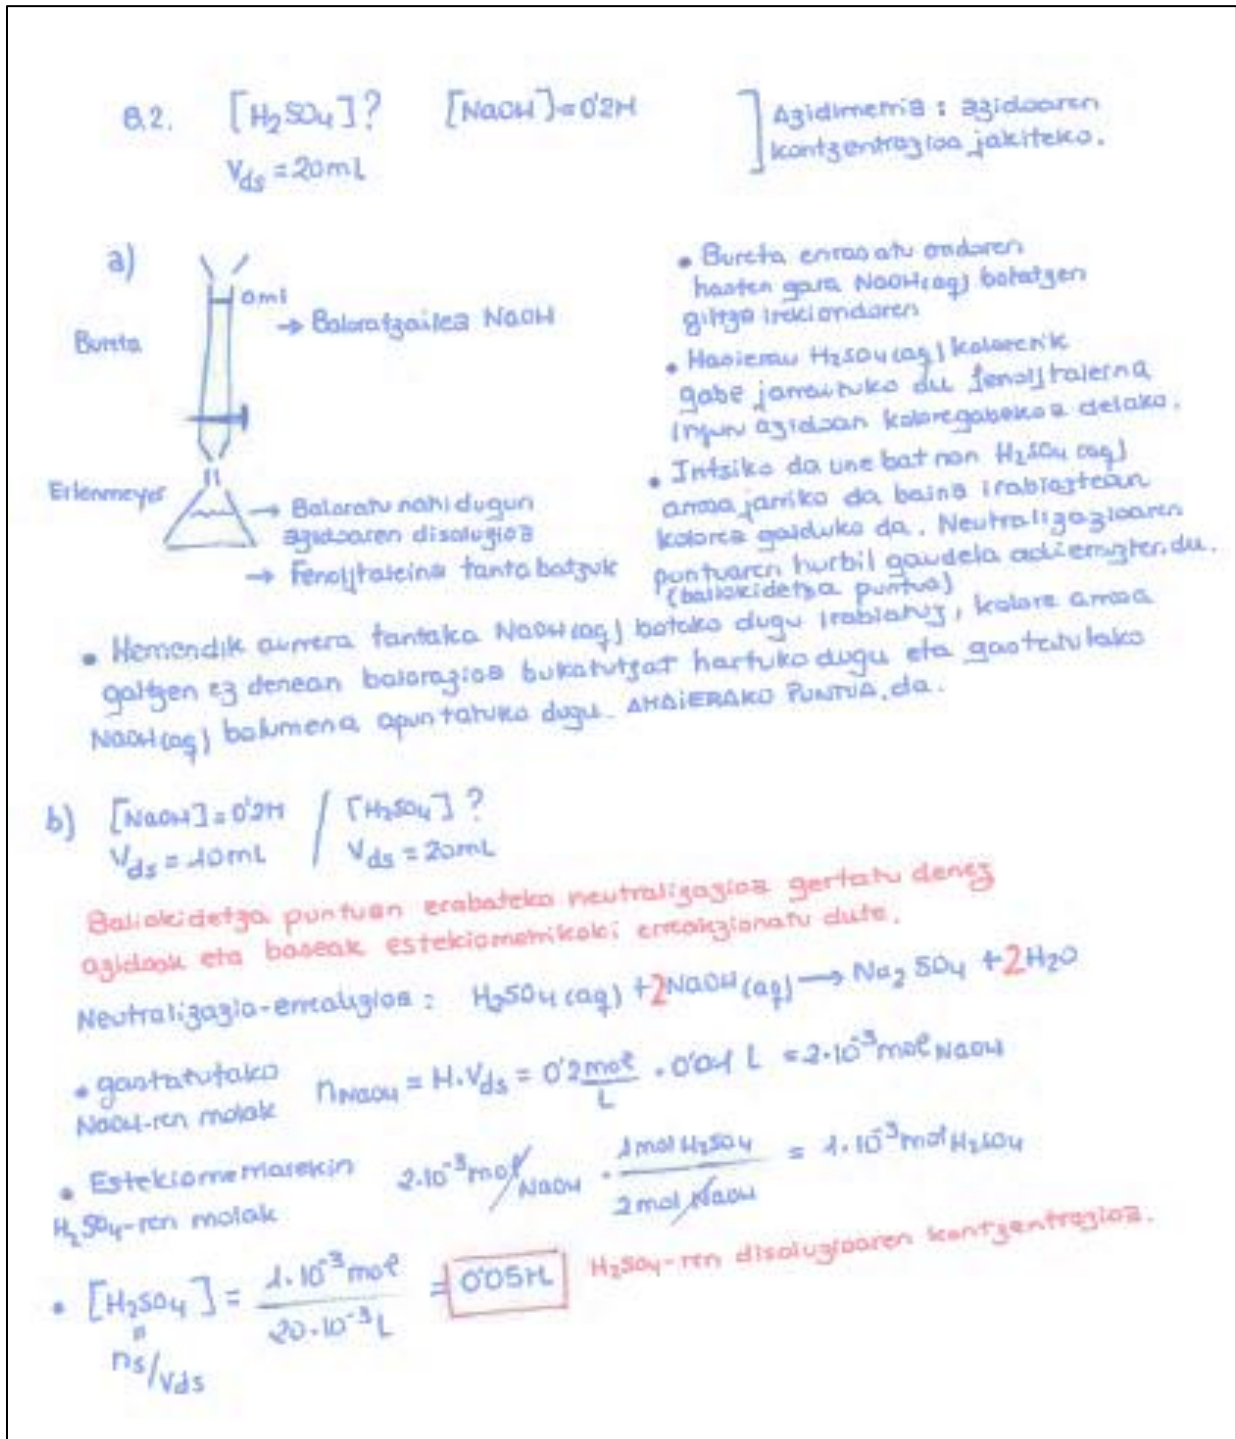 B.2. [H₂SO₄]? [NaOH]=0'2M ] Azidimetria: azidoaren
Vds = 20mL kontzentrazioa jakiteko.
a)
0ml
Bureta → Baloratzailea NaOH
Erlenmeyer → Baloratu nahi dugun
azidoaren disoluzioa
→ Fenolftaleina tanta batzuk
• Bureta enrasatu ondoren
hasten gara NaOH(aq) botatzen
giltza ireki ondoren
• Hasieran H₂SO₄(aq) kolorerik
gabe jarraituko du fenolftaleina
ingun azidoan koloregabekoa delako.
• Iritsiko da une bat non H₂SO₄(aq)
arrosa jarriko da baina irabiaztean
kolorea galduko da. Neutralizazioaren
puntuaren hurbil gaudela adierazten du.
(baliokidetza puntua)
• Hemendik aurrera tantaka NaOH(aq) botako dugu irabiatuz, kolore arrosa
galtzen ez denean balorazioa bukatutzat hartuko dugu eta gastatutako
NaOH(aq) bolumena apuntatuko dugu. AMAIERAKO PUNTUA da.
b) [NaOH]=0'2M / [H₂SO₄]?
Vds = 10mL / Vds = 20mL
Baliokidetza puntuan erabateko neutralizazioa gertatu denez
azidoak eta baseak estekiometrikoki erreakzionatu dute.
Neutralizazio-erreakzioa: H₂SO₄(aq) + 2NaOH(aq) → Na₂SO₄ + 2H₂O
• gastatutako nNaOH = M·Vds = 0'2 mol/L · 0'01 L = 2·10⁻³ mol NaOH
NaOH-ren molak
• Estekiometriarekin 2·10⁻³ mol NaOH · 1 mol H₂SO₄ / 2 mol NaOH = 1·10⁻³ mol H₂SO₄
H₂SO₄-ren molak
• [H₂SO₄] = 1·10⁻³ mol / 20·10⁻³ L = 0'05M H₂SO₄-ren disoluzioaren kontzentrazioa.
=
ns/Vds